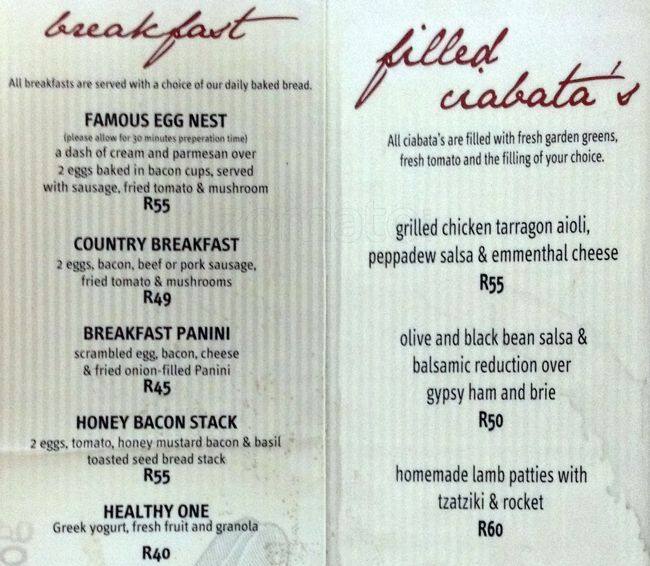 breakfast
All breakfasts are served with a choice of our daily baked bread.
FAMOUS EGG NEST
(please allow for 30 minutes preperation time)
a dash of cream and parmesan over
2 eggs baked in bacon cups, served
with sausage, fried tomato & mushroom
R55
COUNTRY BREAKFAST
2 eggs, bacon, beef or pork sausage,
fried tomato & mushrooms
R49
BREAKFAST PANINI
scrambled egg, bacon, cheese
& fried onion-filled Panini
R45
HONEY BACON STACK
2 eggs, tomato, honey mustard bacon & basil
toasted seed bread stack
R55
HEALTHY ONE
Greek yogurt, fresh fruit and granola
R40
filled
ciabata's
All ciabata's are filled with fresh garden greens,
fresh tomato and the filling of your choice.
grilled chicken tarragon aioli,
peppadew salsa & emmenthal cheese
R55
olive and black bean salsa &
balsamic reduction over
gypsy ham and brie
R50
homemade lamb patties with
tzatziki & rocket
R60